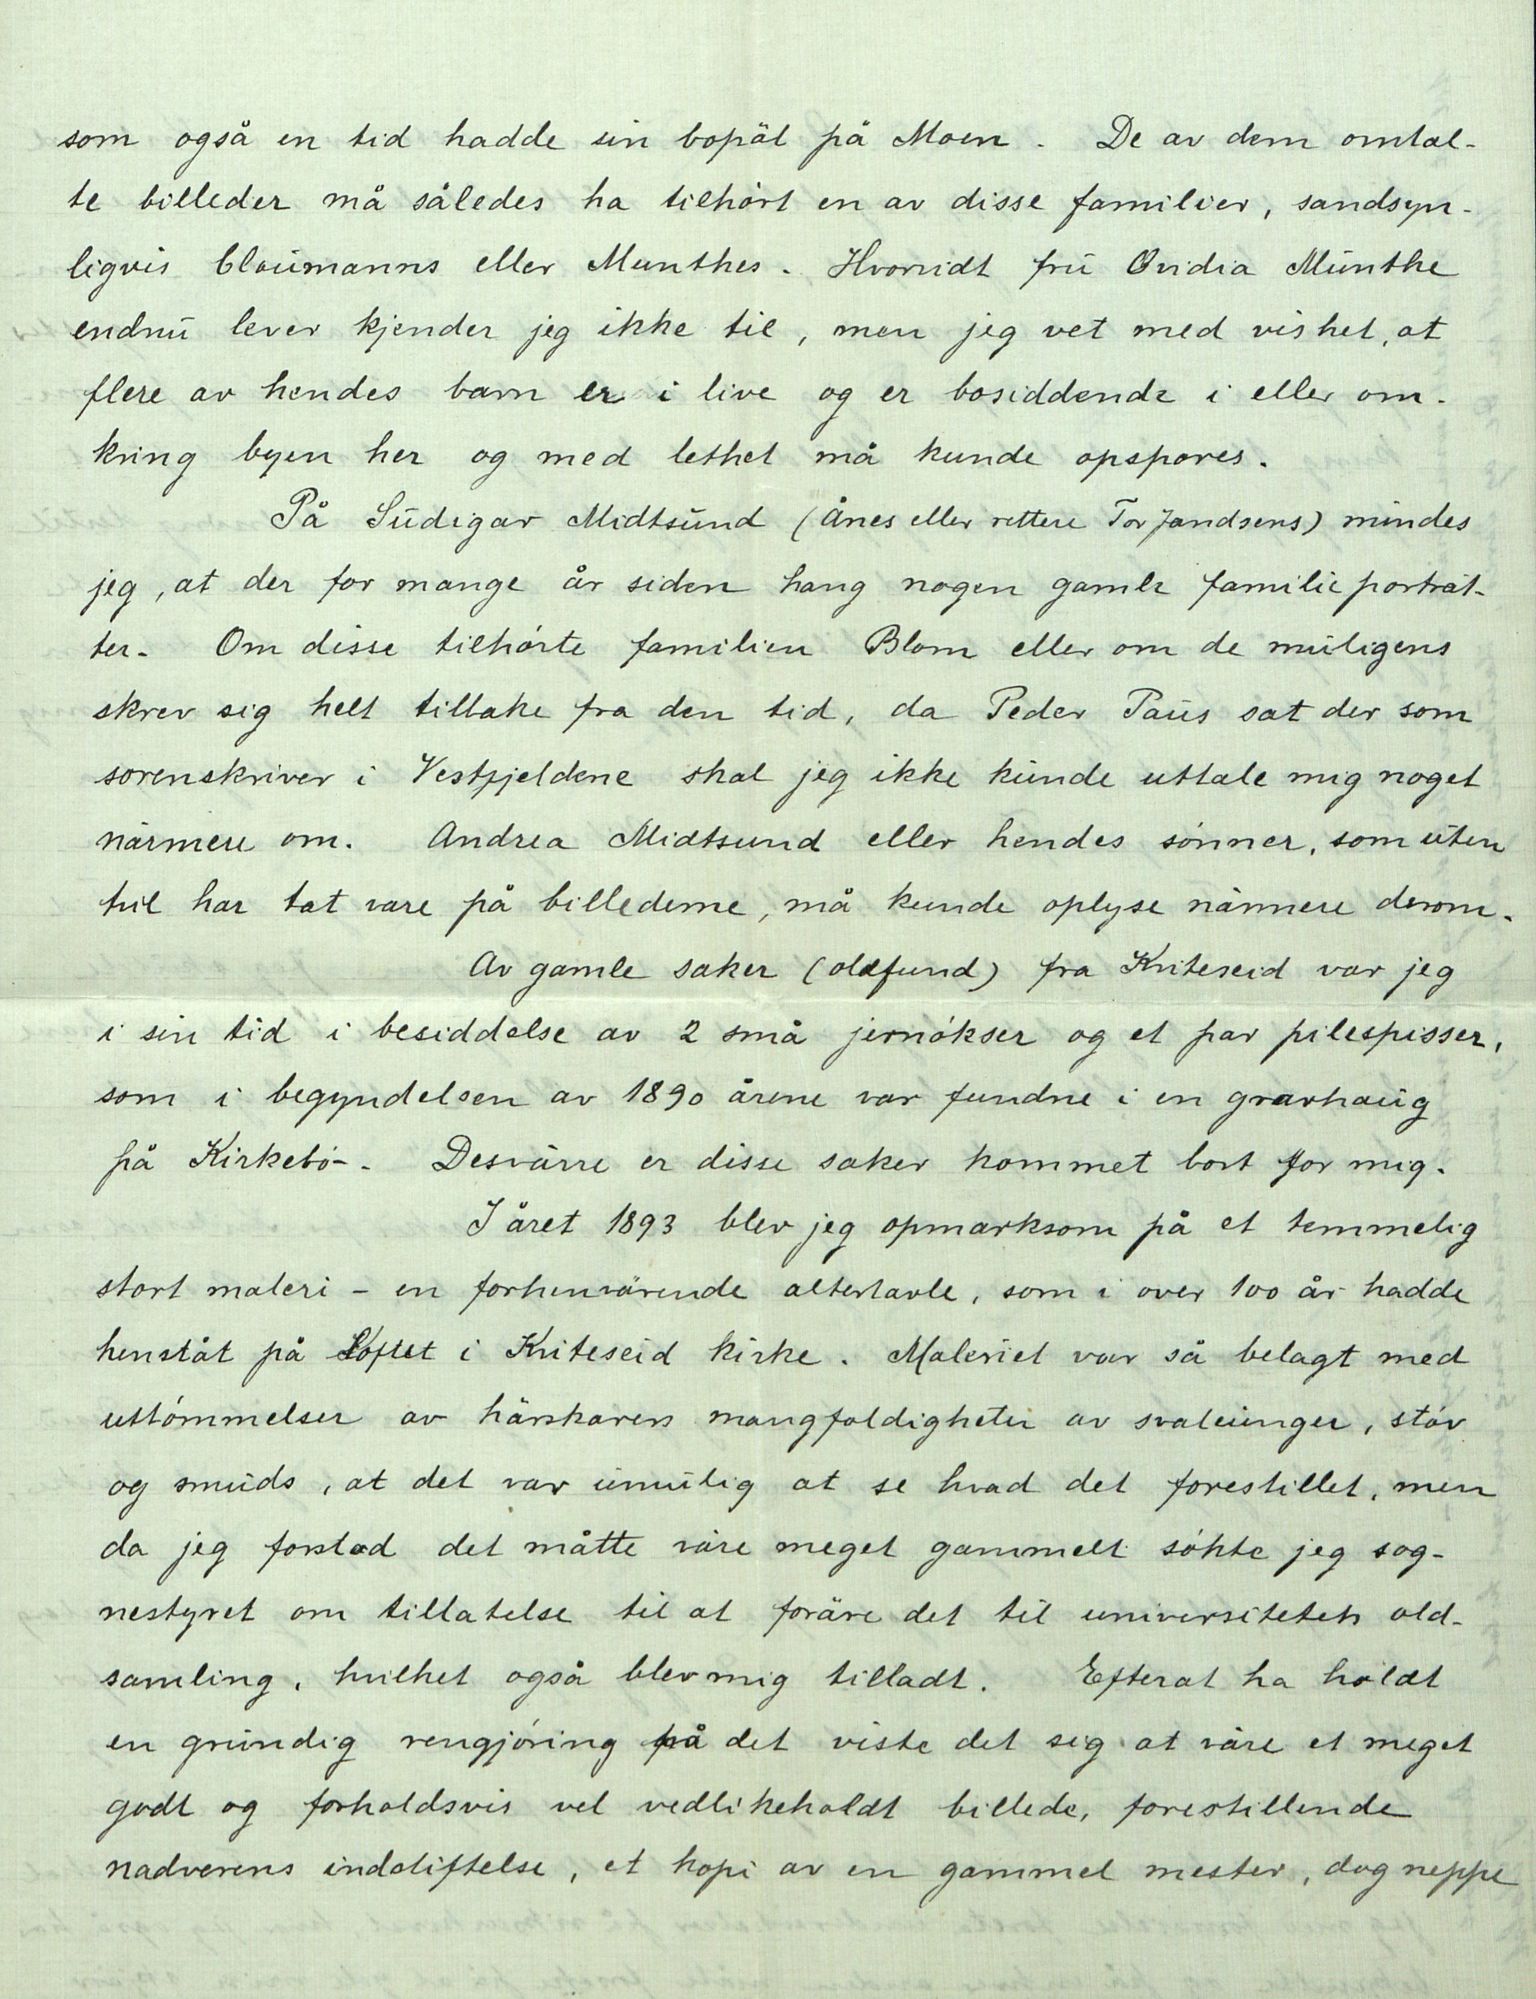 som også en tid hadde sin bopäl på Moen. De av dem omtal-
te billeder må således ha tilhört en av disse familier, sandsyn-
ligvis Claumanns eller Munthes. Hvorvidt fru Ovidia Munthe
endnu lever kjender jeg ikke til, men jeg vet med vished, at
flere av hendes barn er i live og er bosiddende i eller om-
kring byen her og med lethet må kunde opspores.
På Sudigar Midtsund (Ånes eller rettere Tor Jandsens) mindes
jeg, at der for mange år siden hang nogen gamle familieporträt-
ter. Om disse tilhörte familien Blom eller om de muligens
skrev sig helt tilbake fra den tid, da Peder Paus sat der som
sorenskriver i Vestfjeldene skal jeg ikke kunde uttale mig noget
närmere om. Andrea Midtsund eller hendes sönner, som uten
tvil har tat vare på billederne, må kunde oplyse närmere derom.
Av gamle saker (oldfund) fra Kviteseid var jeg
i sin tid i besiddelse av 2 små jernökser og et par pilespisser,
som i begyndelsen av 1890 årene var fundne i en gravhaug
på Kirkebö-. Desvärre er disse saker kommet bort for mig.
I året 1893 blev jeg opmarksom på et temmelig
stort maleri - en forhenvärende altertavle, som i over 100 år hadde
henståt på Loftet i Kviteseid kirke. Maleriet var så belagt med
uttömmelser av härskarers mangfoldigheter av svaleunger, stöv
og smuds, at det var umulig at se hvad det forestillet, men
da jeg forstod det måtte väre meget gammelt sökte jeg sog-
nestyret om tillatelse til at foräre det til universitetets old-
samling, hvilket også blev mig tilladt. Efterat ha holdt
en grundig rengjöring på det viste det sig at väre et meget
godt og forholdsvis vel vedlikeholdt billede, forestillende
nadverens indstiftelse, et kopi av en gammel mester, dog neppe